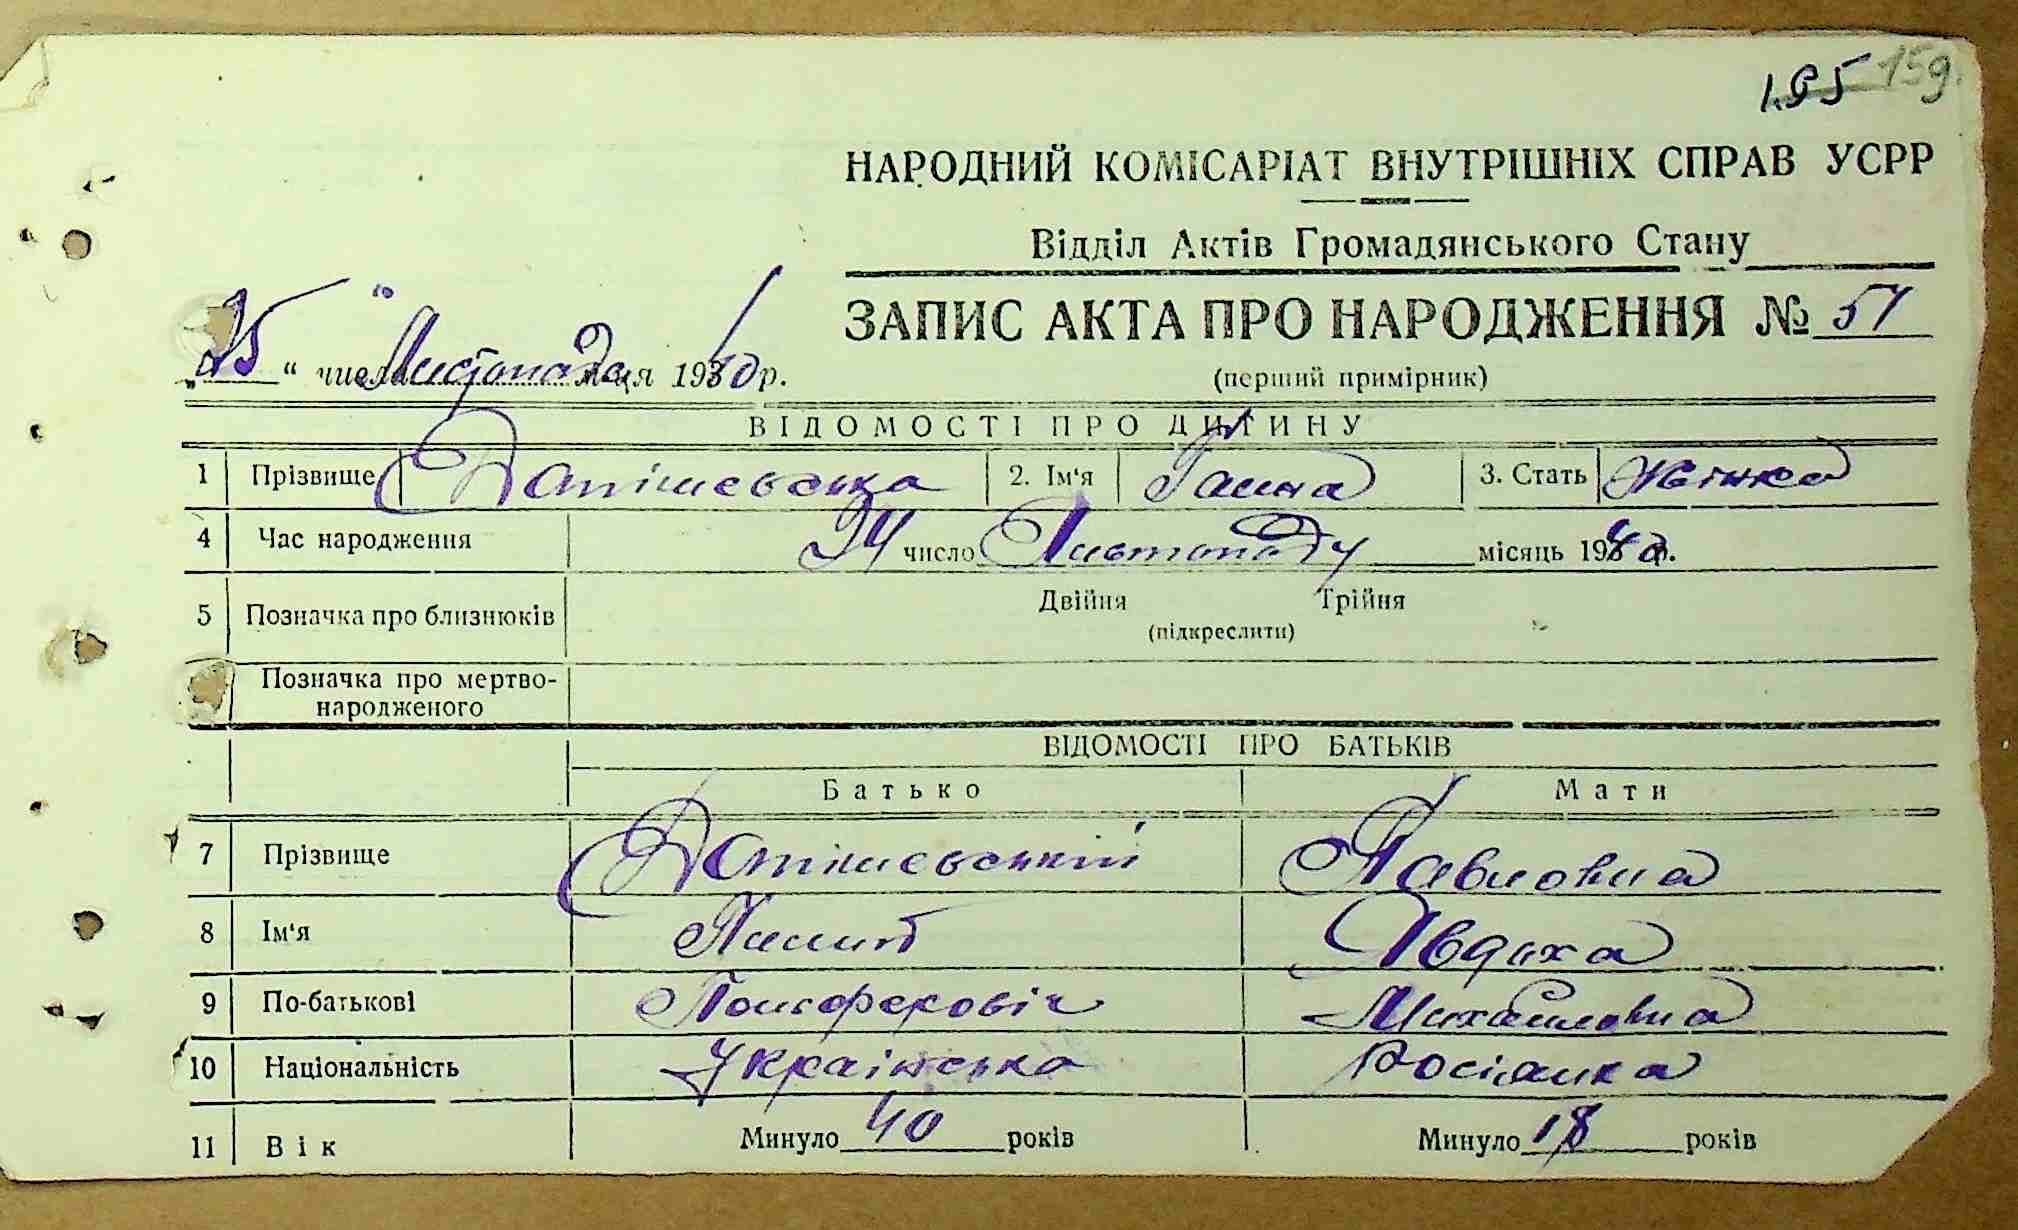 195 159.
НАРОДНИЙ КОМІСАРІАТ ВНУТРІШНІХ СПРАВ УСРР
Відділ Актів Громадянського Стану
ЗАПИС АКТА ПРО НАРОДЖЕННЯ № 51
„25“ числа Листопада м-ця 1940 р.
(перший примірник)
ВІДОМОСТІ ПРО ДИТИНУ
1 Прізвище 2. Ім‘я Ганна 3. Стать жінка
4 Час народження 24 число Листопаду місяць 1940 р.
5 Позначка про близнюків Двійня Трійня
(підкреслити)
Позначка про мертво-
народженого
ВІДОМОСТІ ПРО БАТЬКІВ
Батько Мати
7 Прізвище Павловна
8 Ім‘я Явдоха
9 По-батькові Михайловна
10 Національність Українська Росіянка
11 Вік Минуло 40 років Минуло 18 років